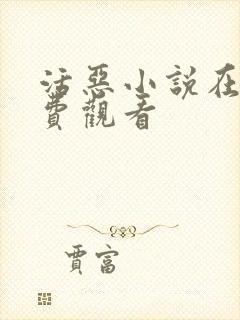 活惡小說在
費觀看
賈富